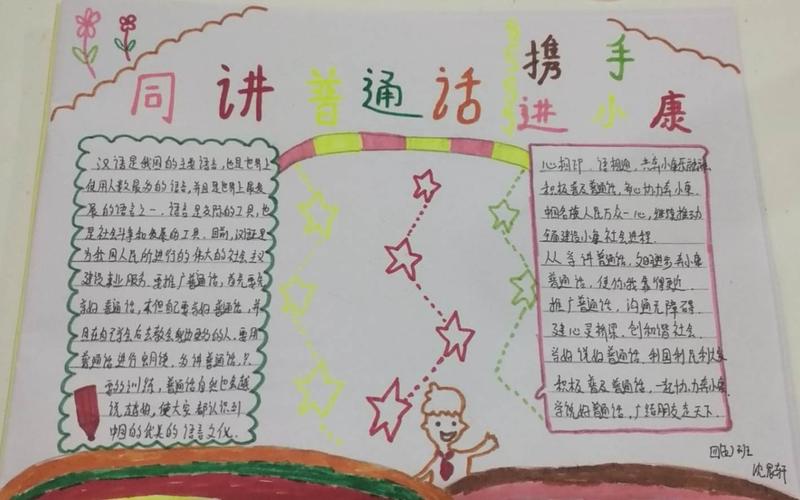 同讲普通话
携手
进小康
汉语是我国的主要语言,也是世界上
使用人数最多的语言,并且是世界上最发
展的语言之一。语言是交际的工具,也
是社会斗争和发展的工具。目前,汉语是
为我国人民所进行的伟大的社会主义
建设事业服务。要推广普通话,首先要先
学好普通话,不但自己要学好普通话,并
且在自己学会后去教会帮助更多的人,要用
普通话进行朗读,多讲普通话,只
要多训练,普通话自然也会越
说越好,使大家都认识到
中国的优美的语言文化。
心相印,语相通,共奔小康乐融融
积极普及普通话,齐心协力奔小康
中国各族人民万众一心,继续推动
全面建设小康社会进程
从学讲普通话,文明进步奔小康
普通话,使你我靠得更近
推广普通话,沟通无障碍
建心灵桥梁,创和谐社会
学好说好普通话,利国利民利大家
积极普及普通话,一起协力奔小康
学说好普通话,广结朋友走天下
四(2)班
沈家轩